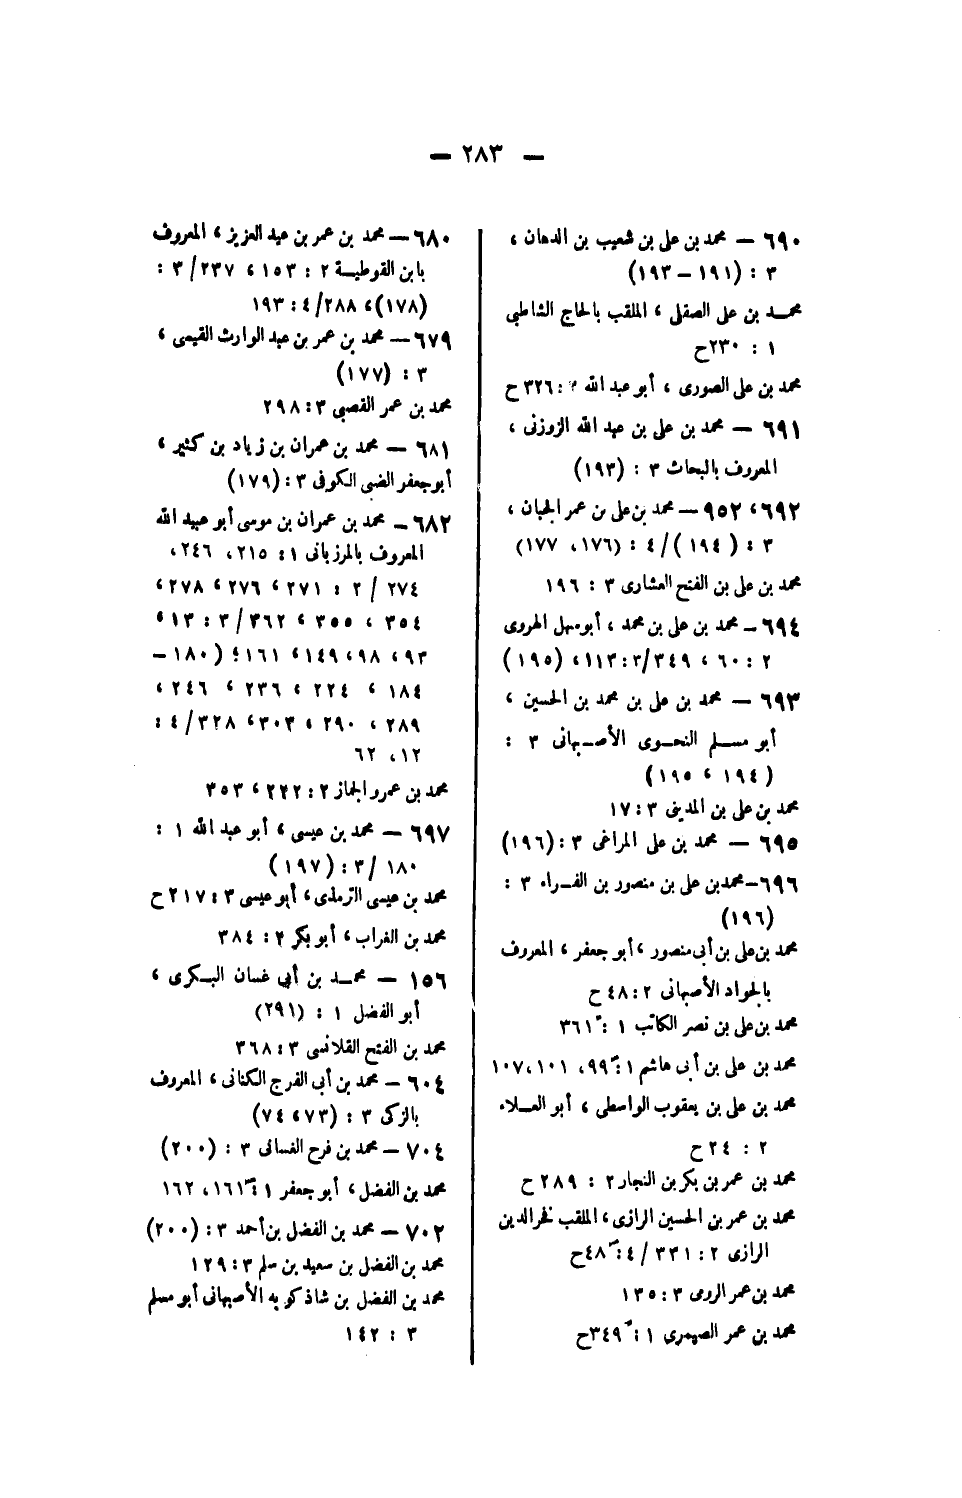 — ٢٨٣ —
٦٩٠ — محمد بن على بن شعيب بن الدهان ،
٣ : (١٩١ – ١٩٣)
محمد بن على الصقلى ، الملقب بالحاج الشاطبى
١ : ٢٣٠ح
محمد بن على الصورى ، أبو عبد الله ٢ : ٣٢٦ ح
٦٩١ — محمد بن على بن عبد الله الزوزنى ،
المعروف بالبحاث ٣ : (١٩٣)
٦٩٢، ٩٥٢ — محمد بن على بن عمر الجبان ،
٣ : (١٩٤) / ٤ : (١٧٦، ١٧٧)
محمد بن على بن الفتح العشارى ٣ : ١٩٦
٦٩٤ — محمد بن على بن محمد ، أبو سهل الهروى
٢ : ٦٠ ، ٣٤٩/ ٣ : ١١٣، (١٩٥)
٦٩٣ — محمد بن على بن محمد بن الحسين ،
أبو مسلم النحوى الأصبهانى ٣ :
(١٩٤ ، ١٩٥)
محمد بن على بن المدينى ٣ : ١٧
٦٩٥ — محمد بن على المراغى ٣ : (١٩٦)
٦٩٦ — محمد بن على بن منصور بن الفراء ٣ :
(١٩٦)
محمد بن على بن أبى منصور ، أبو جعفر ، المعروف
بالجواد الأصبهانى ٢ : ٤٨ ح
محمد بن على بن نصر الكاتب ١ : ٣٦١
محمد بن على بن أبى هاشم ١ : ٩٩، ١٠١، ١٠٧
محمد بن على بن يعقوب الواسطى ، أبو العلاء
٢ : ٢٤ ح
محمد بن عمر بن بكر بن النجار ٢ : ٢٨٩ ح
محمد بن عمر بن الحسين الرازى ، الملقب فخر الدين
الرازى ٢ : ٣٣١ / ٤ : ٤٨ح
محمد بن عمر الرومى ٣ : ١٣٥
محمد بن عمر الصيمرى ١ : ٣٤٩ح
٦٨٠ — محمد بن عمر بن عبد العزيز ، المعروف
بابن القوطية ٢ : ١٥٣ ، ٢٣٧/ ٣ :
(١٧٨)، ٢٨٨/ ٤ : ١٩٣
٦٧٩ — محمد بن عمر بن عبد الوارث القيسى ،
٣ : (١٧٧)
محمد بن عمر القصبى ٣ : ٢٩٨
٦٨١ — محمد بن عمران بن زياد بن كثير ،
أبو جعفر الضبى الكوفى ٣ : (١٧٩)
٦٨٢ — محمد بن عمران بن موسى أبو عبيد الله
المعروف بالمرزبانى ١ : ٢١٥، ٢٤٦،
٢٧٤ / ٢ : ٢٧١ ، ٢٧٦ ، ٢٧٨،
٣٥٤ ، ٣٥٥ ، ٣٦٢/ ٣ : ١٣،
٩٣، ٩٨، ١٤٩، ١٦١، (١٨٠ –
١٨٤ ، ٢٢٤ ، ٢٣٦ ، ٢٤٦،
٢٨٩ ، ٢٩٠ ، ٣٠٣، ٣٢٨/ ٤ :
١٢، ٦٢
محمد بن عمرو الجماز ٢ : ٢٢٢، ٣٥٣
٦٩٧ — محمد بن عيسى ، أبو عبد الله ١ :
١٨٠ / ٣ : (١٩٧)
محمد بن عيسى الترمذى، أبو عيسى ٣ : ٢١٧ ح
محمد بن الغراب، أبو بكر ٢ : ٣٨٤
١٥٦ — محمد بن أبي غسان البكرى ،
أبو الفضل ١ : (٢٩١)
محمد بن الفتح القلانسى ٣ : ٣٦٨
٦٠٤ — محمد بن أبى الفرج الكنانى ، المعروف
بالزكى ٣ : (٧٣، ٧٤)
٧٠٤ — محمد بن فرح الغسانى ٣ : (٢٠٠)
محمد بن الفضل، أبو جعفر ١ : ١٦١، ١٦٢
٧٠٢ — محمد بن الفضل بن أحمد ٣ : (٢٠٠)
محمد بن الفضل بن سعيد بن سلم ٣ : ١٢٩
محمد بن الفضل بن شاذكويه الأصبهانى أبو مسلم
٣ : ١٤٢